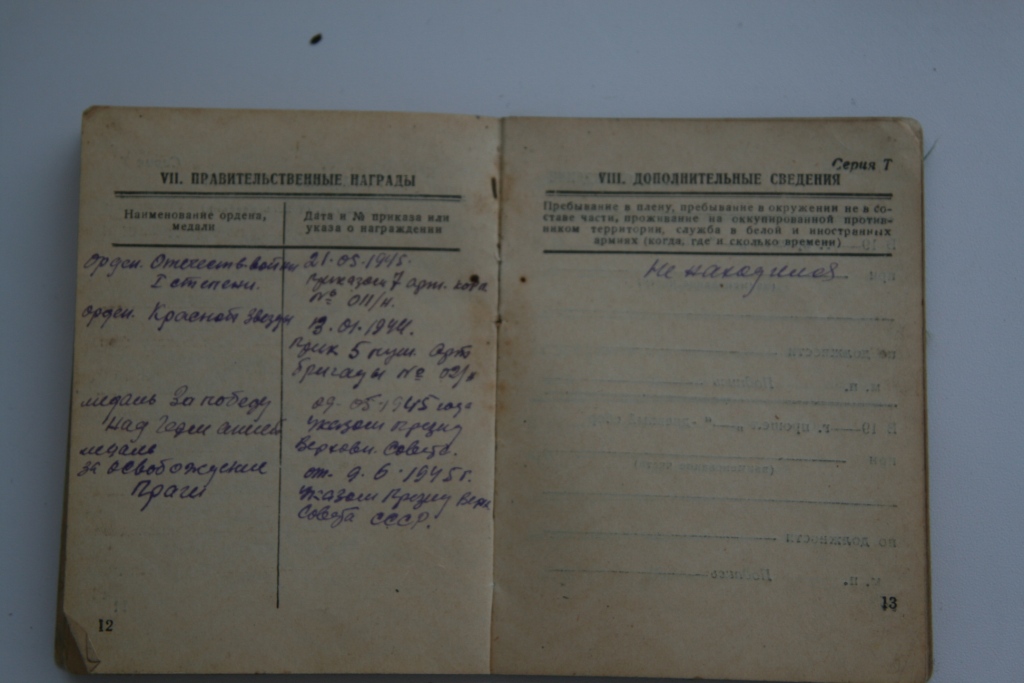 VII. ПРАВИТЕЛЬСТВЕННЫЕ НАГРАДЫ
Наименование ордена,
медали
Дата и № приказа или
указа о награждении
Орден. Отечеств войны
I степени.
21-05-1945.
Приказом 7 арт.
№ 011/н.
орден. Красной Звезды
13-01-1944.
5 пуш. Арт
бригады № 02/н
медаль За победу
над Германией
09-05-1945 года
Указом Презид
Верховн. Совета.
медаль
за освобождение
Праги
от. 9-6-1945 г.
Указом Презид Верх
Совета СССР.
12
Серия Т
VIII. ДОПОЛНИТЕЛЬНЫЕ СВЕДЕНИЯ
Пребывание в плену, пребывание в окружении не в со-
ставе части, проживание на оккупированной против-
ником территории, служба в белой и иностранных
армиях (когда, где и сколько времени)
Не находился
13